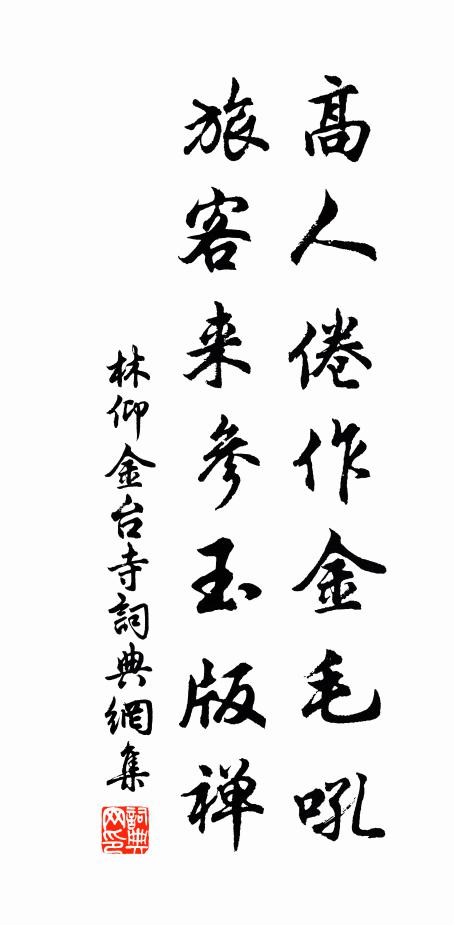 高人倦作金毛吼
旅客来參玉版禅
林仰金台寺詞典網集
詞典网印